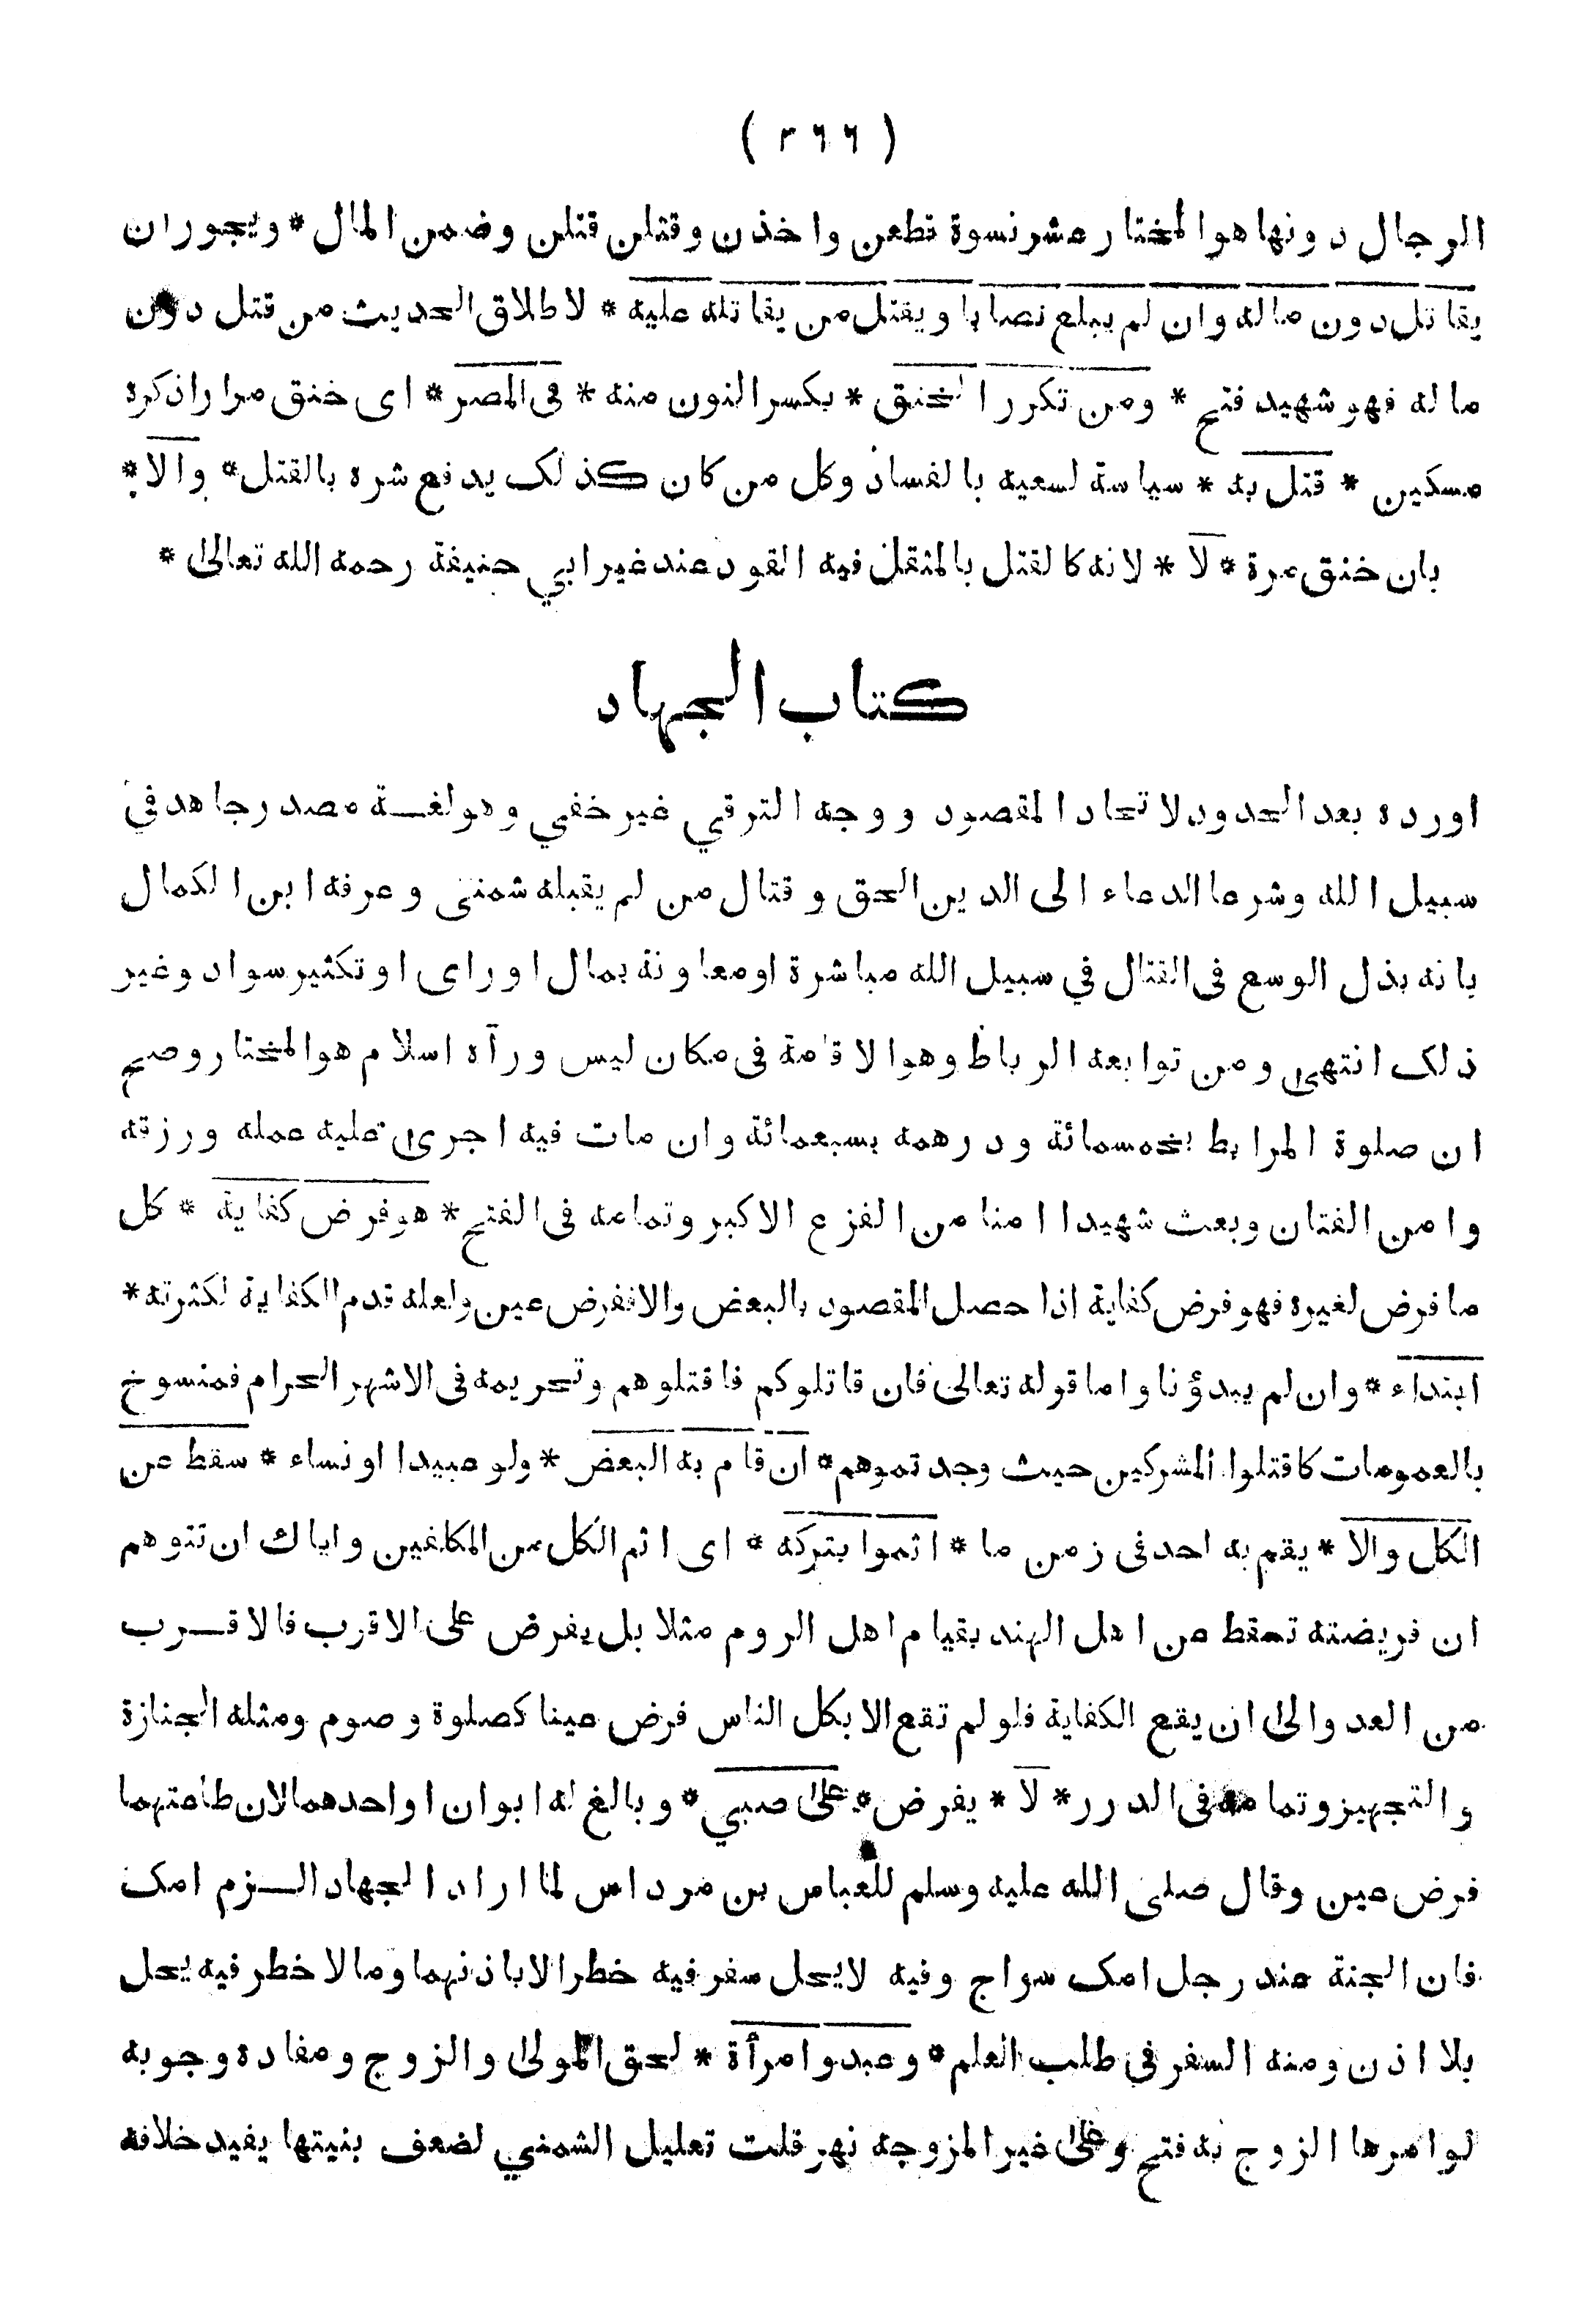 ( ٣٦٦ )
الرجال دونها هو المختار عشر نسوة قطعن واخذن وقتلن قتلن وضمن المال * ويجوز ان
يقاتل دون ماله وان لم يبلغ نصابا ويقتل من يقاتله عليه * لاطلاق الحديث من قتل دون
ماله فهو شهيد فتح * ومن تكرر الخنق * بكسر النون منه * فى المصر * اى خنق مرارا ذكره
مسكين * قتل به * سياسة لسعيه بالفساد وكل من كان كذلك يدفع شره بالقتل * والا *
بان خنق مرة * لا * لانه كالقتل بالمثقل فيه القود عند غير ابي حنيفة رحمه الله تعالى *
كتاب الجهاد
اورده بعد الحدود لاتحاد المقصود ووجه الترقي غير خفي وهو لغة مصدر جاهد في
سبيل الله وشرعا الدعاء الى الدين الحق وقتال من لم يقبله شمنى وعرفه ابن الكمال
بانه بذل الوسع فى القتال في سبيل الله مباشرة او معاونة بمال او راى او تكثير سواد وغير
ذلك انتهى ومن توابعه الرباط وهو الاقامة فى مكان ليس ورآه اسلام هو المختار وصح
ان صلوة المرابط بخمسمائة ودرهمه بسبعمائة وان مات فيه اجرى عليه عمله ورزقه
وامن الفتان وبعث شهيدا امنا من الفزع الاكبر وتمامه فى الفتح * هو فرض كفاية * كل
ما فرض لغيره فهو فرض كفاية اذا حصل المقصود بالبعض والا ففرض عين ولعله قدم الكفاية لكثرته *
ابتداء * وان لم يبدؤنا واما قوله تعالى فان قاتلوكم فاقتلوهم وتحريمه فى الاشهر الحرام فمنسوخ
بالعمومات كاقتلوا المشركين حيث وجدتموهم * ان قام به البعض * ولو عبيدا او نساء * سقط عن
الكل والا * يقم به احد فى زمن ما * اثموا بتركه * اى اثم الكل من المكلفين واياك ان تتوهم
ان فريضته تسقط عن اهل الهند بقيام اهل الروم مثلا بل يفرض على الاقرب فالاقرب
من العدو الى ان يقع الكفاية فلو لم تقع الا بكل الناس فرض عينا كصلوة وصوم ومثله الجنازة
والتجهيز وتمامه فى الدرر * لا * يفرض * على صبي * وبالغ له ابوان او احدهما لان طاعتهما
فرض عين وقال صلى الله عليه وسلم للعباس بن مرداس لما اراد الجهاد الزم امك
فان الجنة عند رجل امك سراج وفيه لا يحل سفر فيه خطر الا باذنهما وما لا خطر فيه يحل
بلا اذن ومنه السفر في طلب العلم * وعبد وامرأة * لحق المولى والزوج ومفاده وجوبه
لو امرها الزوج به فتح وعلى غير المزوجه نهر قلت تعليل الشمني لضعف بنيتها يفيد خلافه